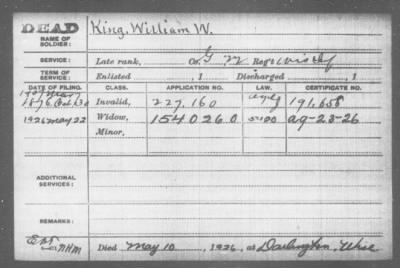 DEAD
NAME OF SOLDIER: King, William W.
SERVICE: Late rank, Co. G 22 Reg't Wis Inf
TERM OF SERVICE: Enlisted , 1 Discharged , 1
DATE OF FILING. CLASS. APPLICATION NO. LAW. CERTIFICATE NO.
1876 Oct 30 Invalid, 227,160 191,658
1926 May 22 Widow, 1540260 ag-23-26
Minor,
ADDITIONAL SERVICES:
REMARKS:
NHM Died May 10, 1926, at Darlington, Wisc